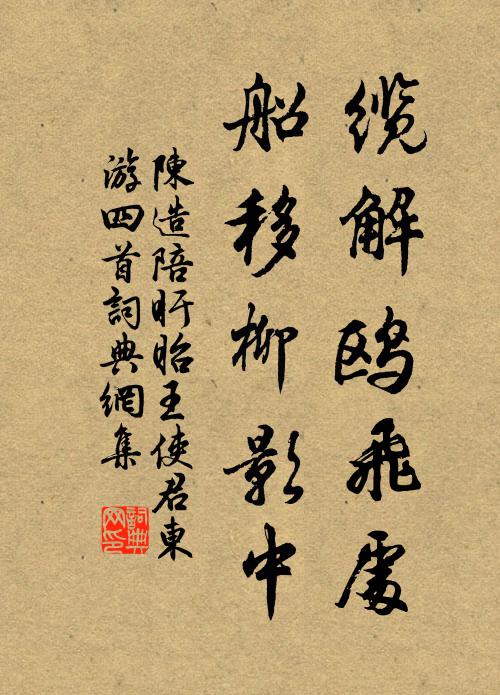 缆解鸥飛處
船移柳影中
陳造陪盱眙王使君東
游四首詞典網集
詞典
网印